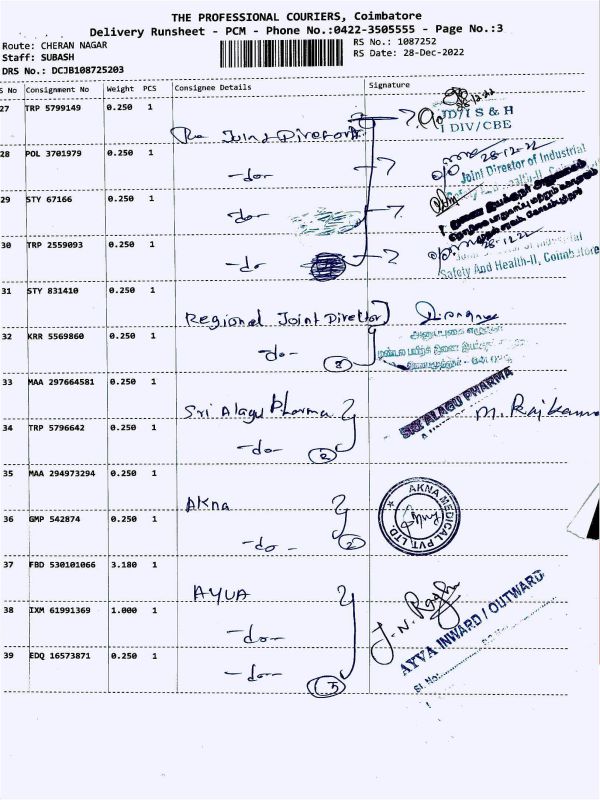 THE PROFESSIONAL COURIERS, Coimbatore
Delivery Runsheet - PCM - Phone No.:0422-3505555 - Page No.:3
Route: CHERAN NAGAR
RS No.: 1087252
Staff: SUBASH
RS Date: 28-Dec-2022
DRS No.: DCJB108725203
S No Consignment No Weight PCS Consignee Details Signature
27 TRP 5799149 0.250 1
The Joint Director
JD/I S & H
I DIV/CBE
28 POL 3701979 0.250 1
-do-
28-12-22
Joint Director of Industrial
29 STY 67166 0.250 1
-do-
30 TRP 2559093 0.250 1
-do-
28-12-22
Safety And Health-II, Coimbatore
31 STY 831410 0.250 1
Regional Joint Director
32 KRR 5569860 0.250 1
-do-
33 MAA 297664581 0.250 1
Sri Alagu Pharma
SRI ALAGU PHARMA
34 TRP 5796642 0.250 1
-do-
2
35 MAA 294973294 0.250 1
AKna
AKNA MEDICAL PVT. LTD.
36 GMP 542874 0.250 1
-do-
2
37 FBD 530101066 3.180 1
AYVA
38 IXM 61991369 1.000 1
-do-
AYVA INWARD / OUTWARD
39 EDQ 16573871 0.250 1
-do-
Sl. No: